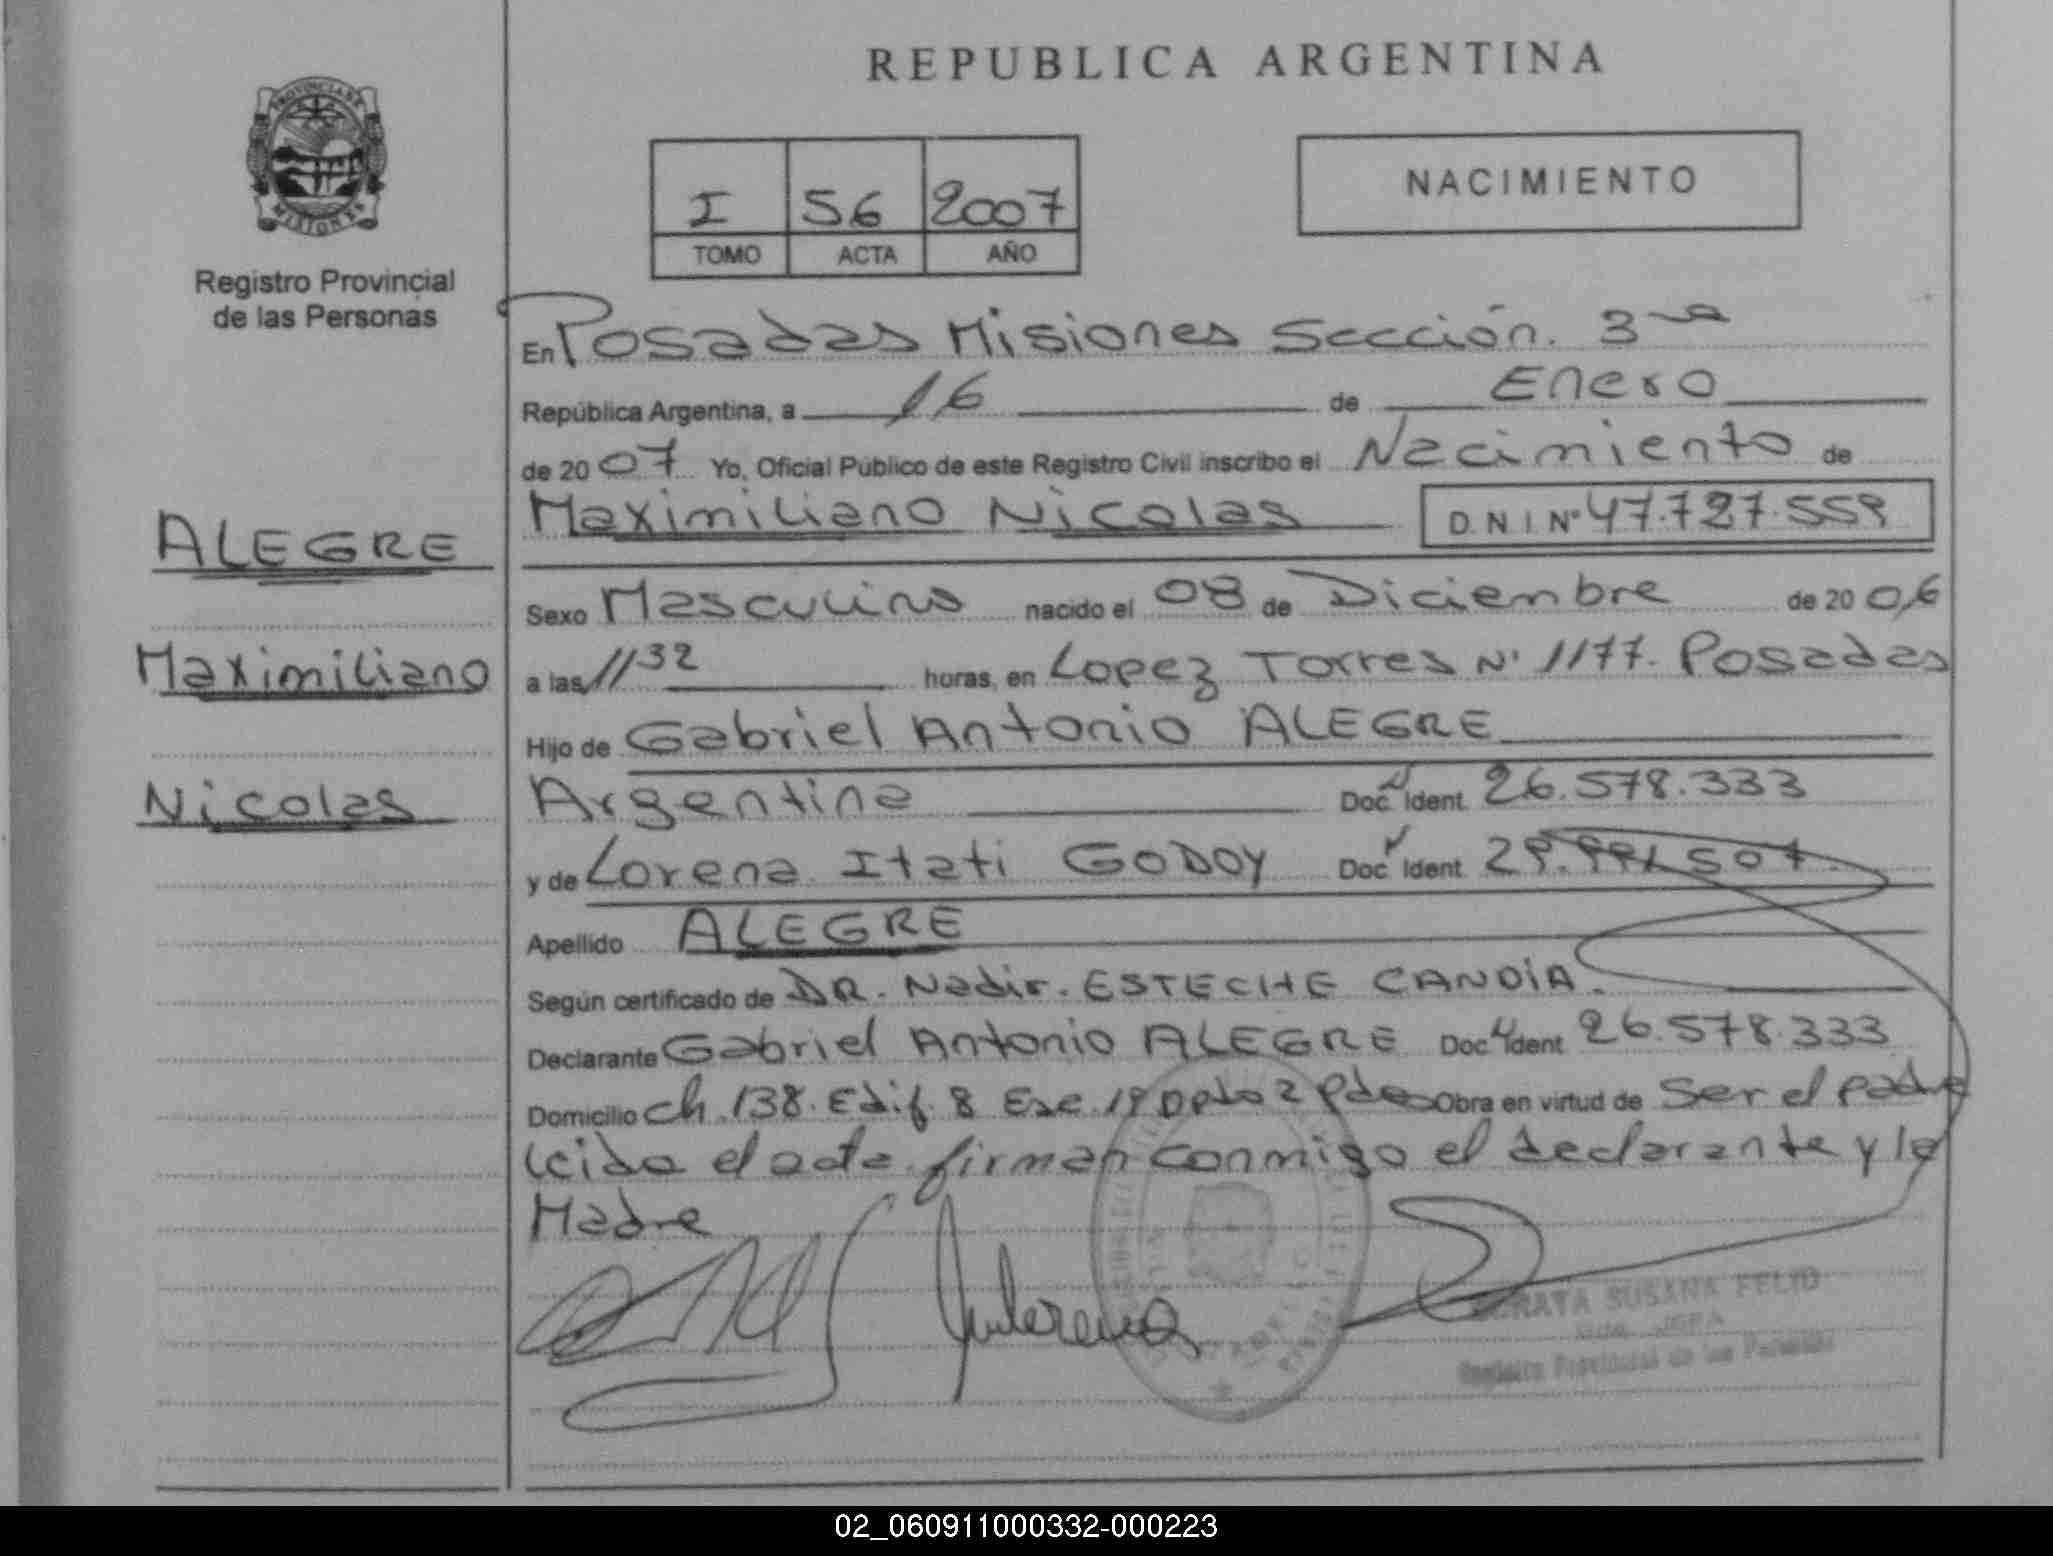 REPUBLICA ARGENTINA
PROVINCIA DE
MISIONES
Registro Provincial
de las Personas
I 56 2007
TOMO ACTA AÑO
NACIMIENTO
En Posadas Misiones Sección. 3ra
República Argentina, a 16 de Enero
de 2007 Yo, Oficial Público de este Registro Civil inscribo el Nacimiento de
Maximiliano Nicolas D.N.I. Nº 47.727.559
ALEGRE
Maximiliano
Nicolas
Sexo Masculino nacido el 08 de Diciembre de 2006
a las 11 32 horas, en Lopez Torres Nº 1177. Posadas
Hijo de Gabriel Antonio ALEGRE
Argentina Doc Ident 26.578.333
y de Lorena Itati GODOY Doc Ident
Apellido ALEGRE
Según certificado de DR. Nadir. ESTECHE CANDIA.
Declarante Gabriel Antonio ALEGRE Doc Ident 26.578.333
Domicilio ch. 138. Edif. 8 Esc. 19 Dpto 2 Pdas Obra en virtud de ser el padre
Leida el acta firman conmigo el declarante y la
Madre
SUSANA FELIP
JEFA
Registro Provincial de las Personas
02_060911000332-000223